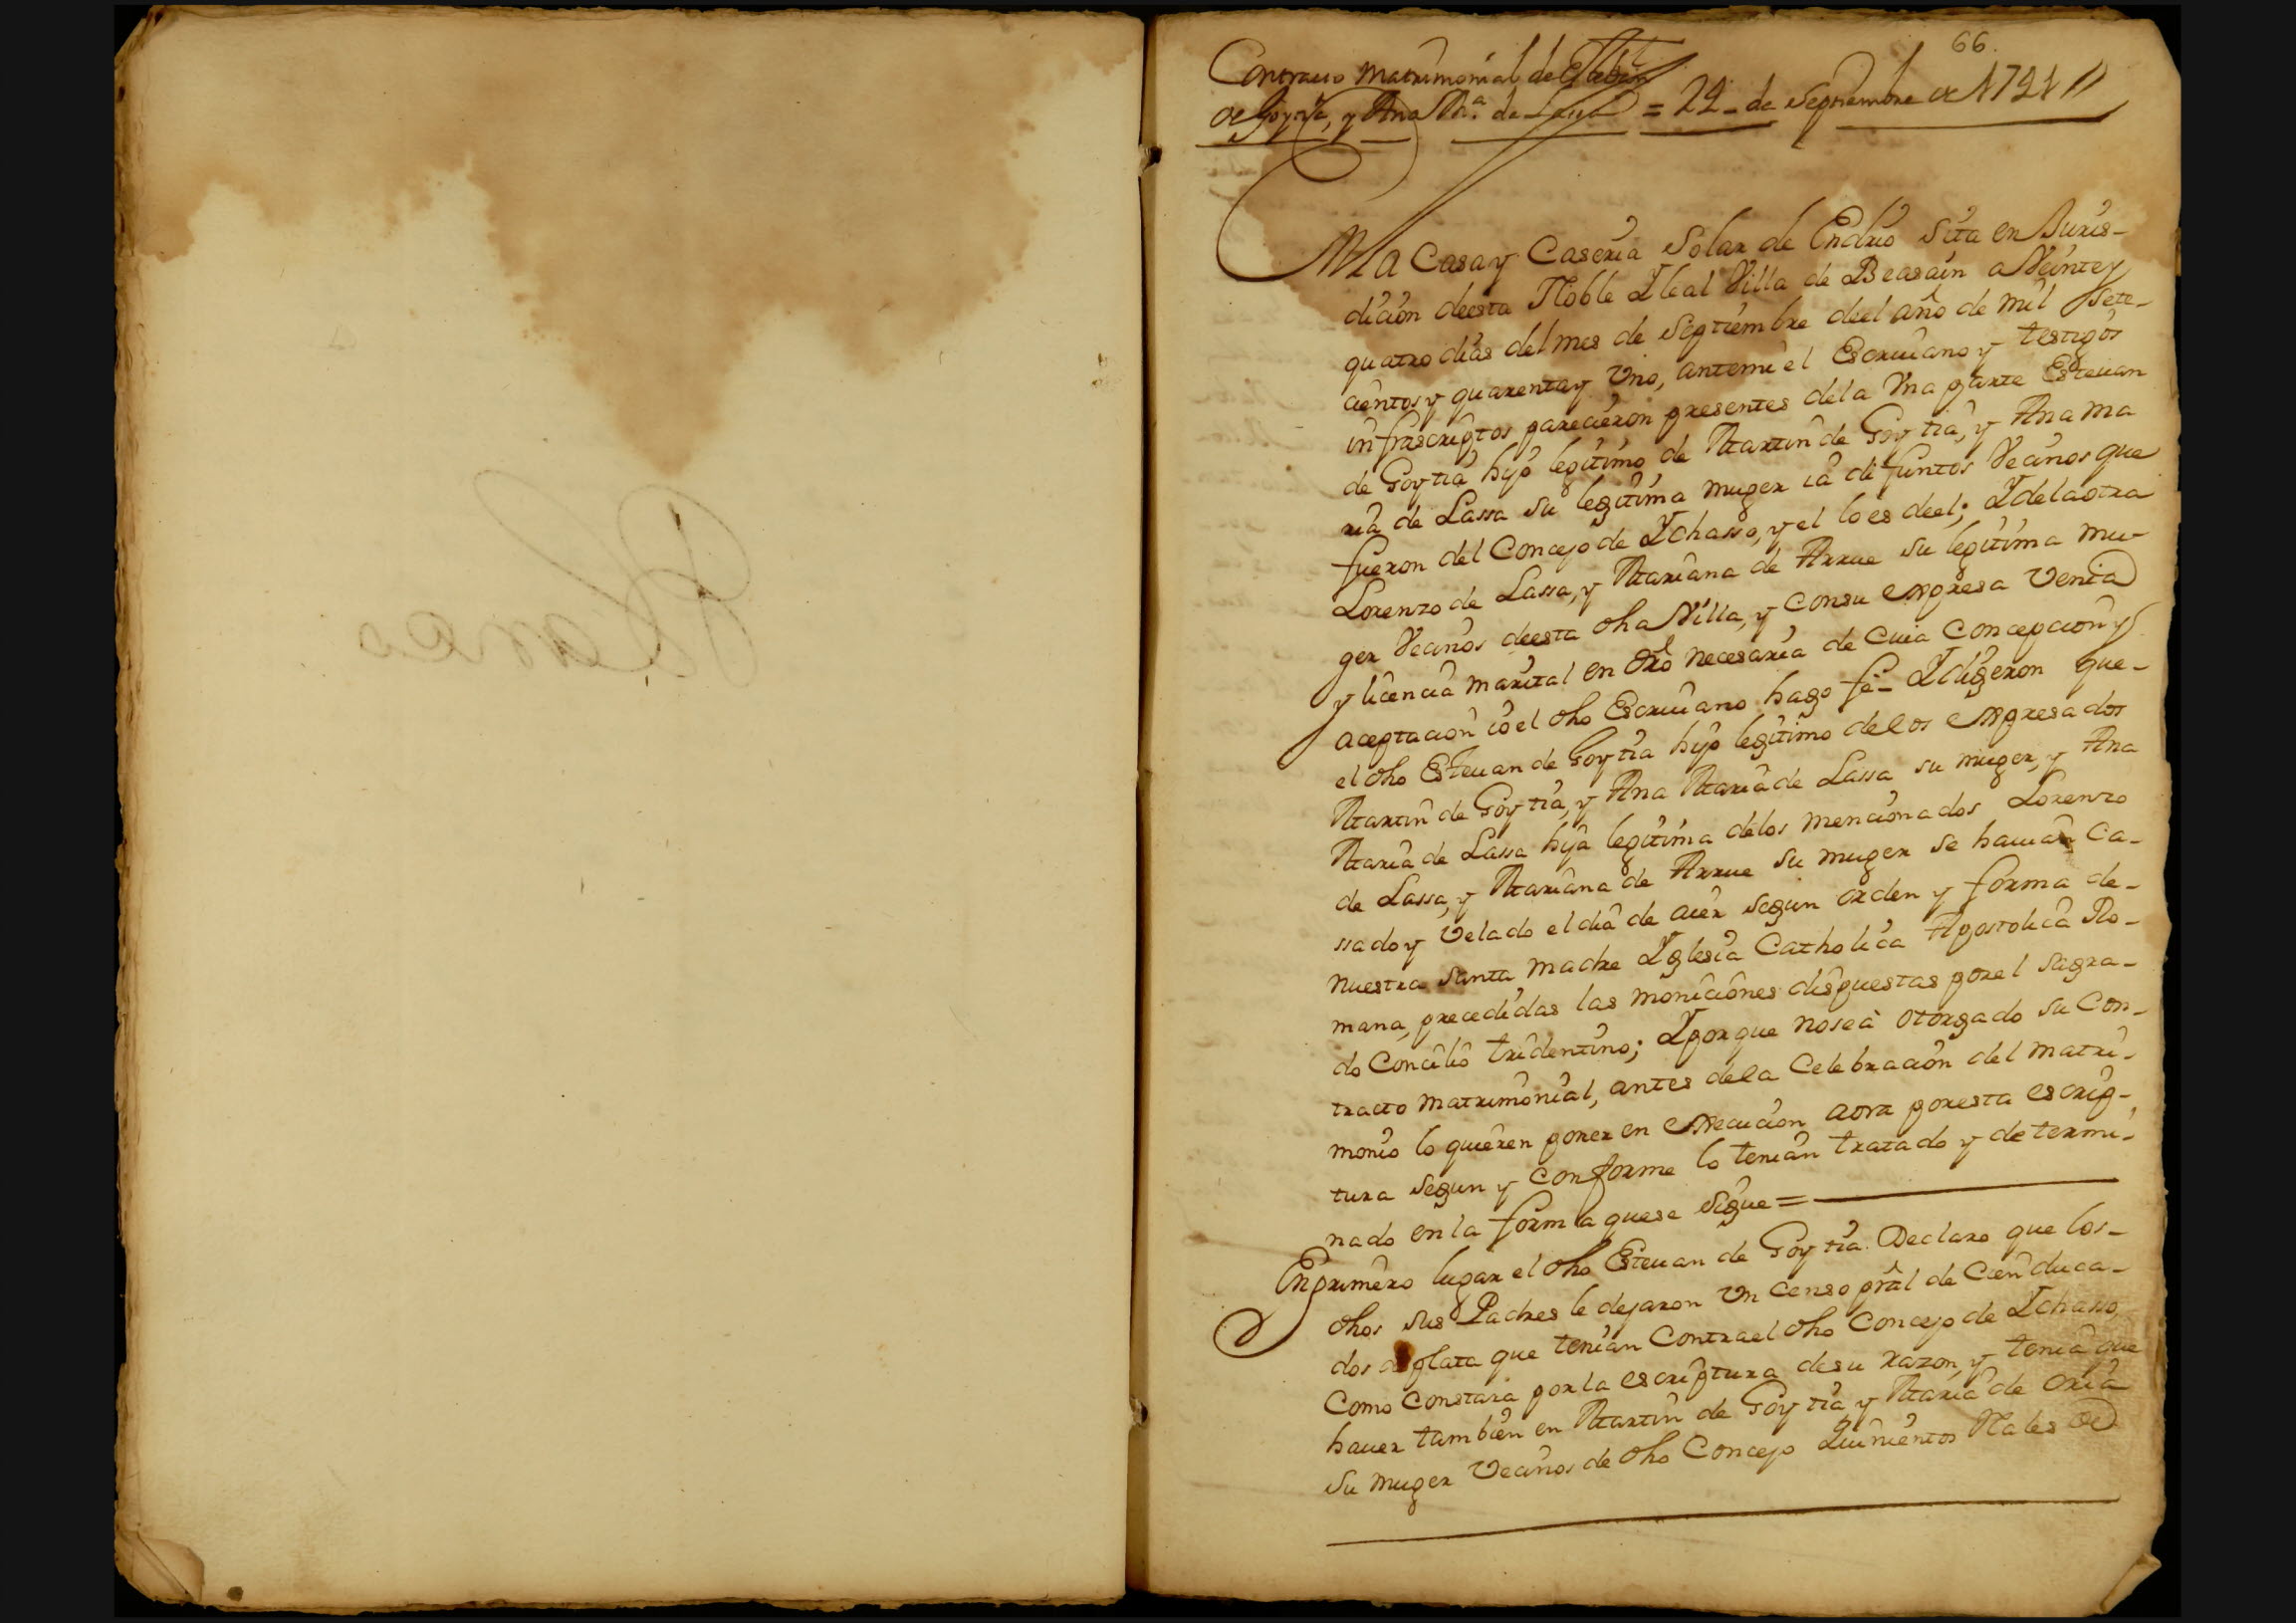 Blanco
66.
Contracto Matrimonial de Esteban
de Goytia, y Ana Mª. de Lassa = 24 - de Septiembre de 1741
En La Casa y Caseria Solar de Endrio Sita en Juris-
dicion deesta Noble Y leal Villa de Beasain a Veinte y
quatro dias del mes de Septiembre deel año de mil Sete-
cientos y quarenta y Uno, antemi el Escriuano y testigos
infrascriptos parecieron presentes dela Una parte Esteuan
de Goytia hijo legitimo de Martin de Goytia, y Ana Ma
ria de Lassa su legitima muger ia difuntos Vecinos que
fueron del Concejo de Ychasso, y el lo es deel; Y dela otra
Lorenzo de Lassa, y Mariana de Arrue su legitima mu-
ger Vecinos deesta dha Villa, y consu expresa Venia
y licencia marital en dro necesaria de cuia Concepcion y
aceptacion io el dho Escriuano hago fe- Y digeron que-
el dho Esteuan de Goytia hijo legitimo delos expresados
Martin de Goytia, y Ana Maria de Lassa su muger, y Ana
Maria de Lassa hija legitima delos mencionados Lorenzo
de Lassa, y Mariana de Arrue su muger se hauian Ca-
ssado y Velado el dia de aier segun orden y forma de-
nuestra Santa madre Yglesia Catholica Apostolica Ro-
mana, precedidas las moniciones dispuestas porel sagra-
do Concilio tridentino; Y porque nose à otorgado su Con-
tracto matrimonial, antes dela Celebracion del matri-
monio lo quieren poner en execucion aora poresta escrip-
tura segun y conforme lo tenian tratado y determi-
nado en la forma quese sigue =
En primero lugar el dho Esteuan de Goytia. Declaro que los-
dhos sus Padres le dejaron Un censo pral de Cien duca-
dos de plata que tenian Contrael dho Concejo de Ychasso,
Como Constara porla escriptura desu razon, y tenia que
hauer tambien en Martin de Goytia y Maria de Oria
su muger Vecinos de dho Concejo Quinientos Rales de